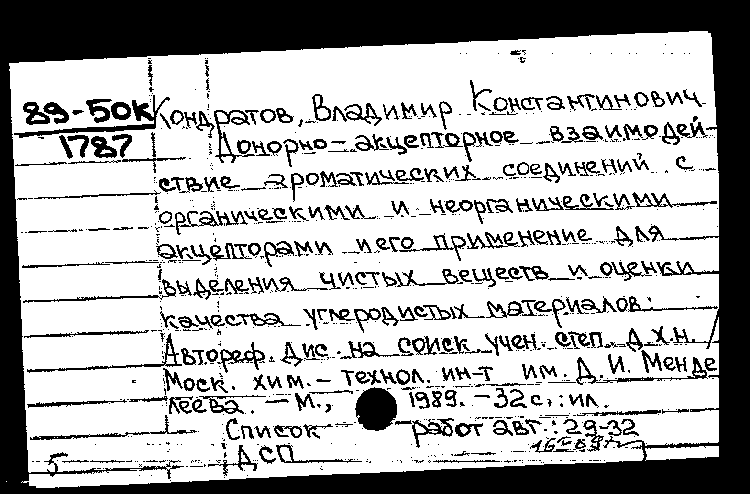 89-50к Кондратов, Владимир Константинович
1787 Донорно-акцепторное взаимодей-
ствие ароматических соединений с
органическими и неорганическими
акцепторами и его применение для
выделения чистых веществ и оценки
качества углеродистых материалов:
Автореф. дис. на соиск. учен. степ. д.х.н. /
Моск. хим.-технол. ин-т им. Д. И. Менде
леева. - М., 1989. - 32 с.: ил.
Список работ авт.: 29-32
5 ДСП